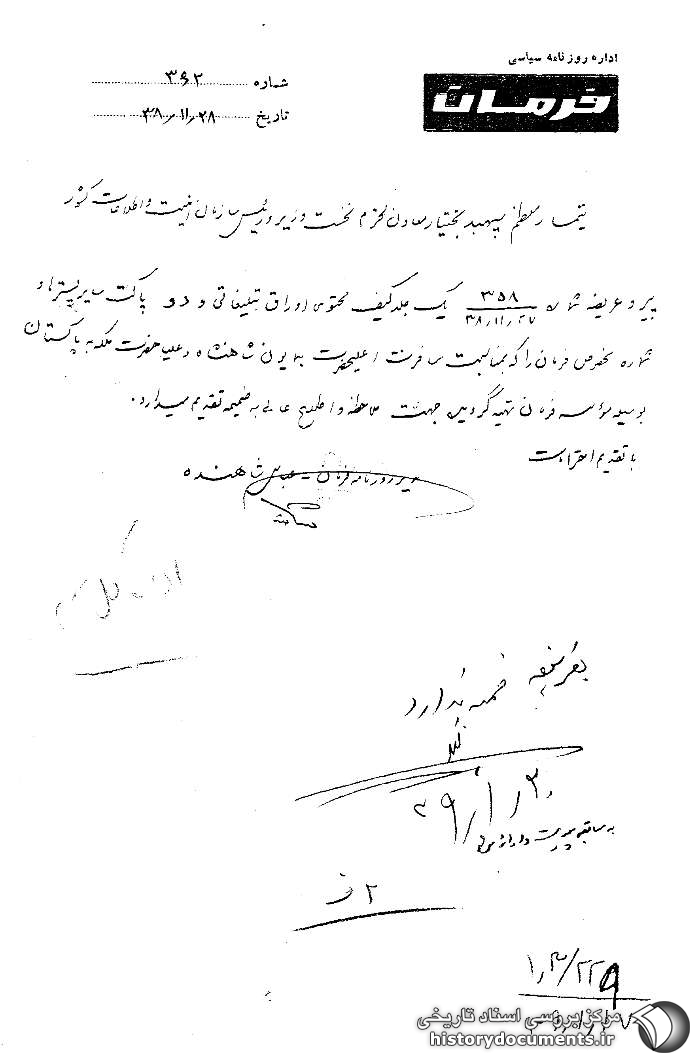 اداره روزنامه سیاسی
فرمان
شماره ۳۶۲
تاریخ ۳۸/۱۱/۲۸
تیمسار معظم سپهبد بختیار معاون محترم نخست وزیر و رئیس سازمان امنیت و اطلاعات کشور
پیرو عریضه شماره ۳۵۸ ۳۸/۱۱/۲۷ یک جلد کیف محتوی اوراق تبلیغاتی و دو پاکت سایر پسترها و
شماره مخصوص فرمان را که بمناسبت مسافرت اعلیحضرت همایون شاهنشاه و علیاحضرت ملکه به پاکستان
بوسیله مؤسسه فرمان تهیه گردیده جهت ملاحظه و اطلاع عالی به ضمیمه تقدیم میدارد.
با تقدیم احترامات
مدیر روزنامه فرمان - عباس شاهنده
ضمیمه ندارد
۳۹/۱/۳۰
به سابقه
۲
مرکز بررسی اسناد تاریخی
historydocuments.ir